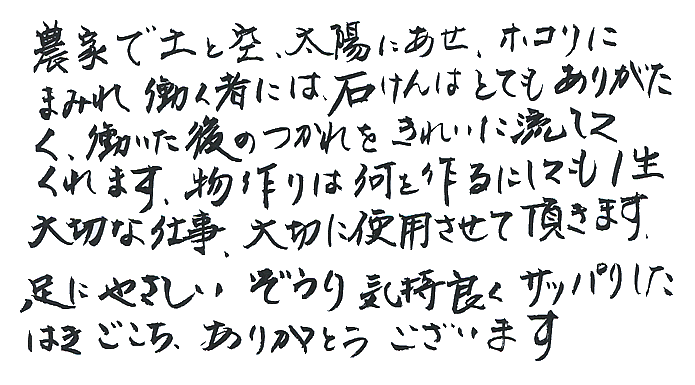 農家で土と空、太陽にあせ、ホコリに
まみれ働く者には、石けんはとてもありがた
く、働いた後のつかれをきれいに流して
くれます、物作りは何を作るにしても1生
大切な仕事、大切に使用させて頂きます、
足にやさしいぞうり気持良くサッパリした
はきごこち、ありがとうございます